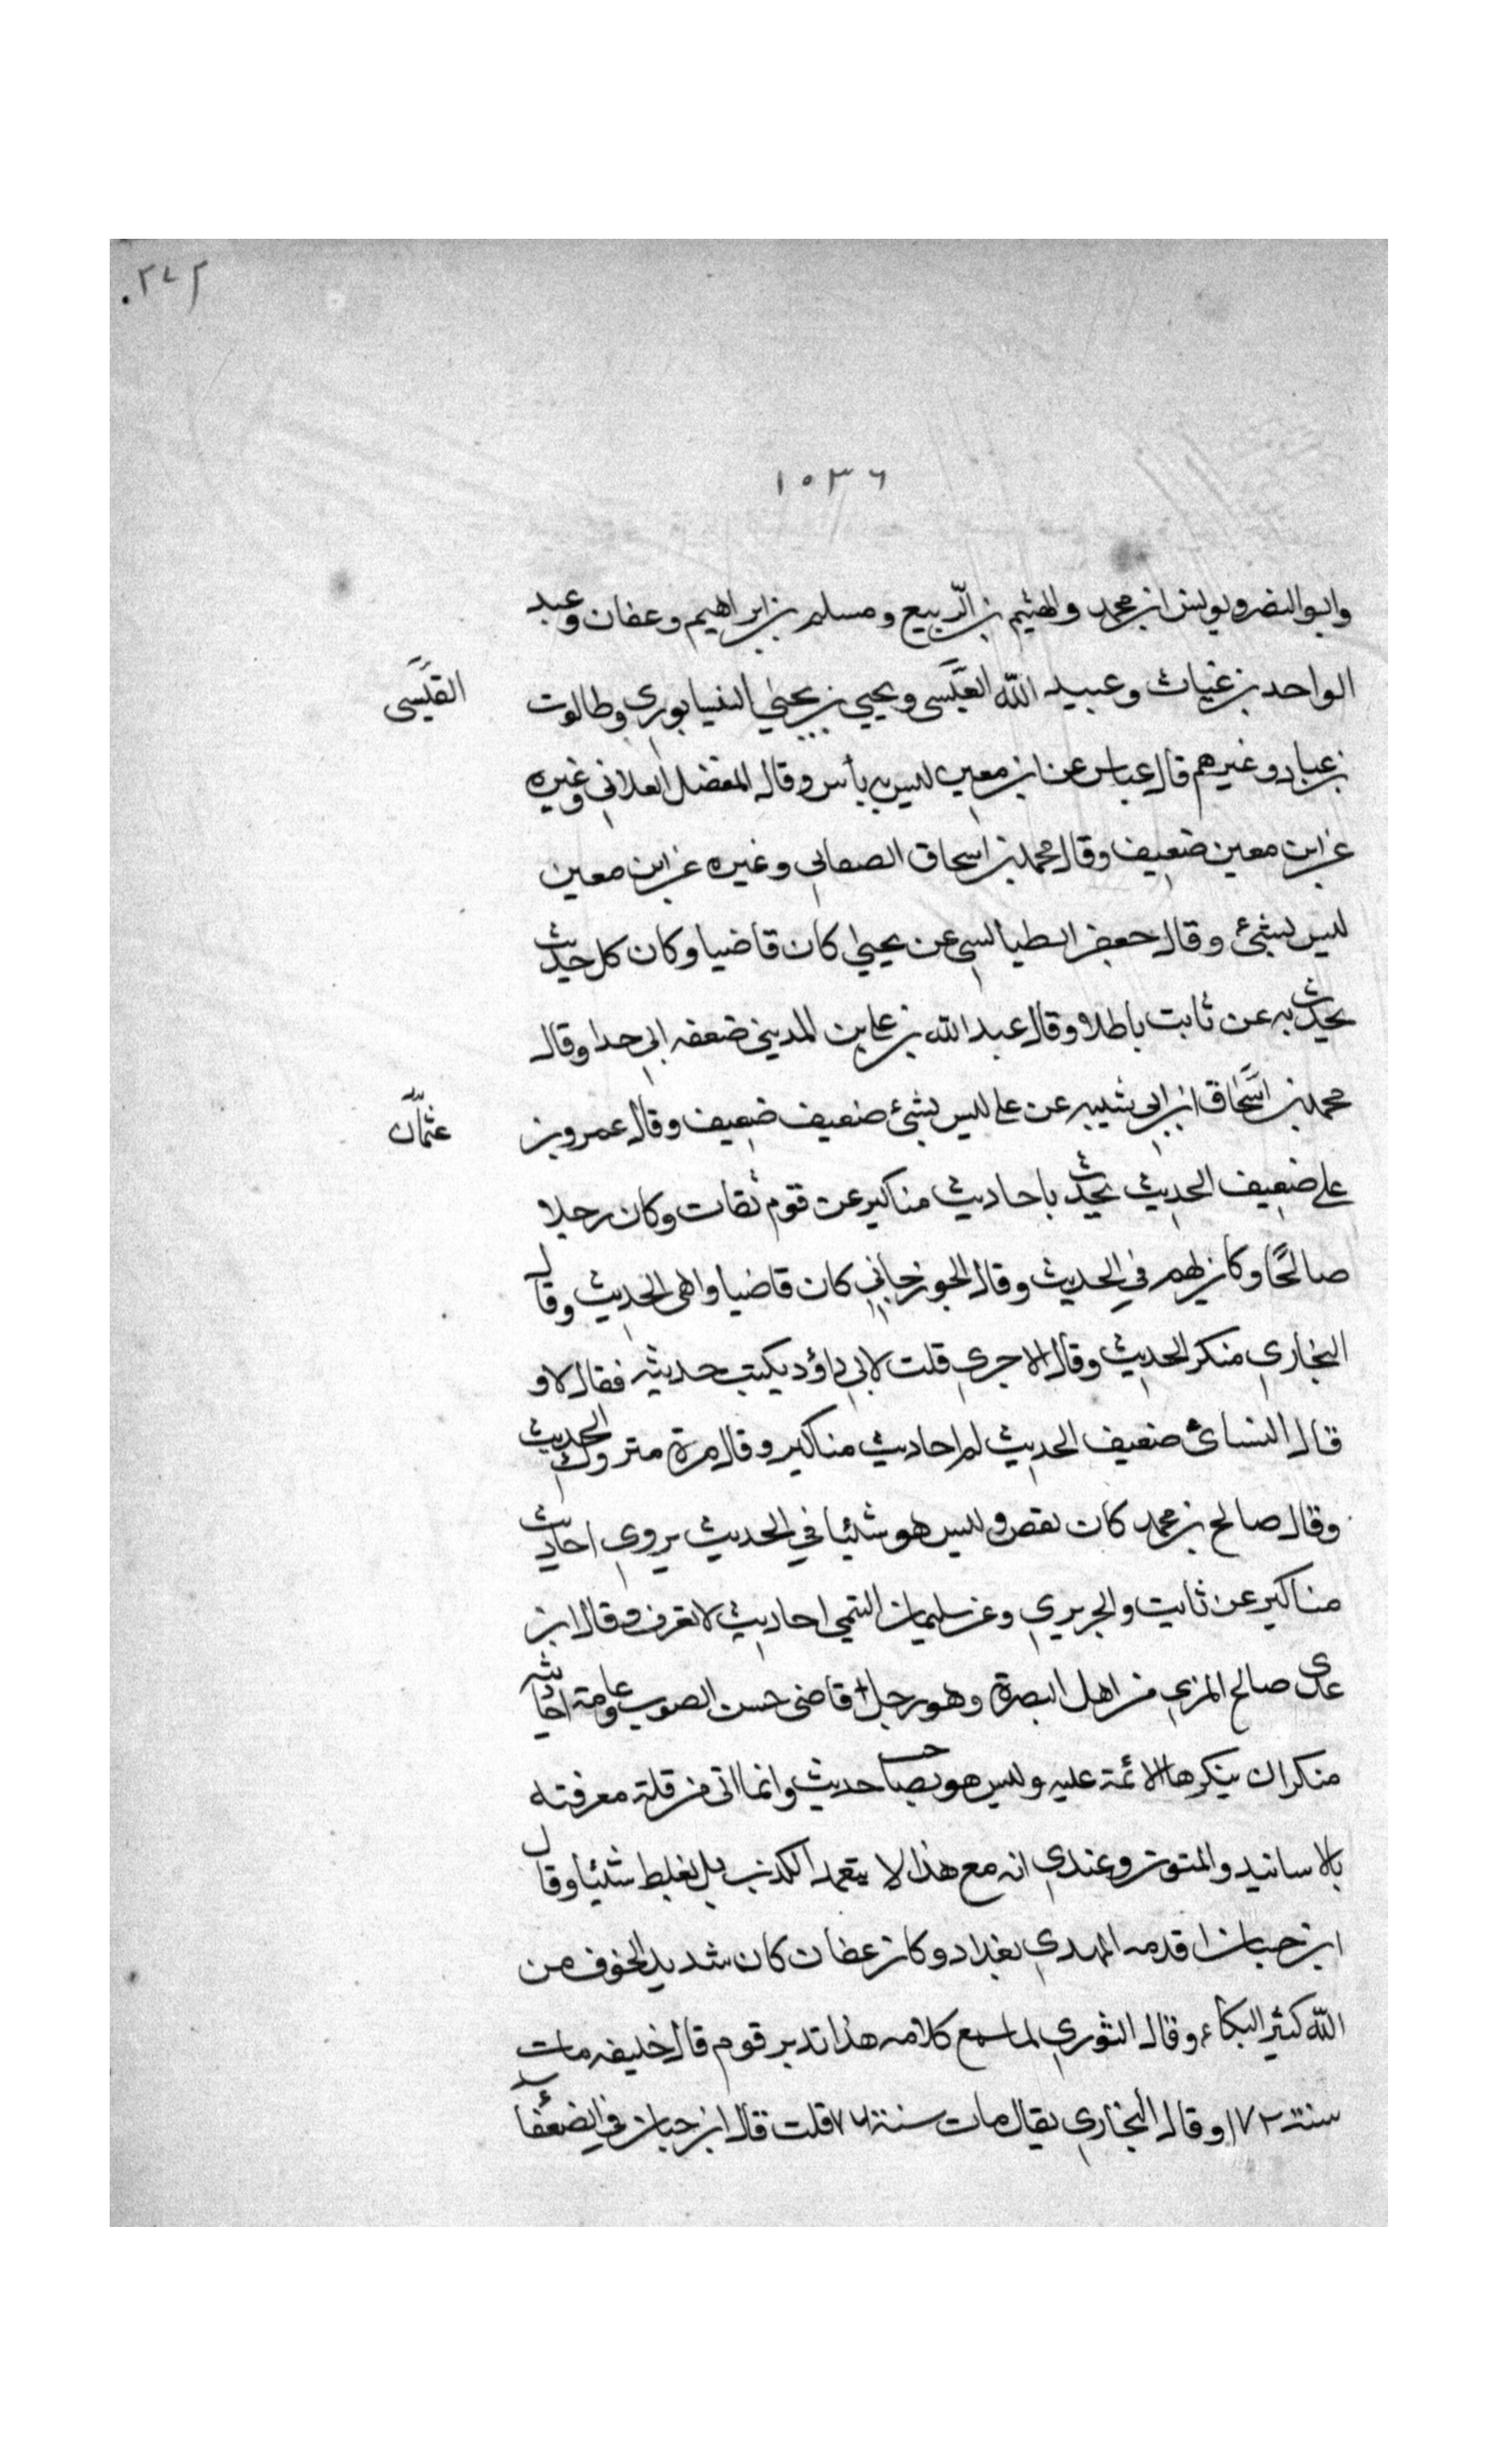 ٢٧٢.
١٠٣٦
وابو النضر ويونس ابن محمد والهيثم بن الربيع ومسلم بن ابراهيم وعفان وعبد
الواحد بن غياث وعبيد الله العيسى ويحيي بن يحيى النيسابوري وطالوت
القيسى
بن عباد وغيرهم قال عباس عن ابن معين ليس به بأس وقال المفضل العلاني وغيره
عن ابن معين ضعيف وقال محمد بن اسحاق الصغاني وغيره عن ابن معين
ليس بشئ وقال جعفر الطيالسي عن يحيى كان قاضيا وكان كل حديث
يحدث به عن ثابت باطلا وقال عبد الله بن على بن المديني ضعفه ابي جدا وقال
محمد بن اسحاق ابن ابي شيبه عن على ليس بشئ ضعيف ضعيف وقال عمرو بن
عثمان
على ضعيف الحديث يحدث باحاديث مناكير عن قوم ثقات وكان رجلا
صالحًا وكان يهم في الحديث وقال الجوزجاني كان قاضيا واهى الحديث وقال
البخاري منكر الحديث وقال الاجري قلت لابي داؤد يكتب حديثه فقال لا و
قال النسائ ضعيف الحديث له احاديث مناكير وقال مرة متروك الحديث
وقال صالح بن محمد كان يقص وليس هو شئيا في الحديث يروي احاديث
مناكير عن ثابت والجريري وعن سليمان التيمي احاديث لا تعرف وقال ابن
عدى صالح المزي من اهل البصرة وهو رجل قاضى حسن الصوت وعامة احاديثه
منكرات ينكرها الائمة عليه وليس هو بصاحب حديث وانما اتى من قلة معرفته
بالاسانيد والمتون وعندي انه مع هذا لا يتعمد الكذب بل يغلط شئيا وقال
ابن حبان اقدمه المهدي بغداد وكان عفان كان شديد الخوف من
الله كثير البكاء وقال الثوري لما سمع كلامه هذا تدبر قوم قال خليفه مات
سنة ١٧٢ وقال البخاري يقال مات سنة ٧٦ قلت قال ابن حبان في الضعفاء